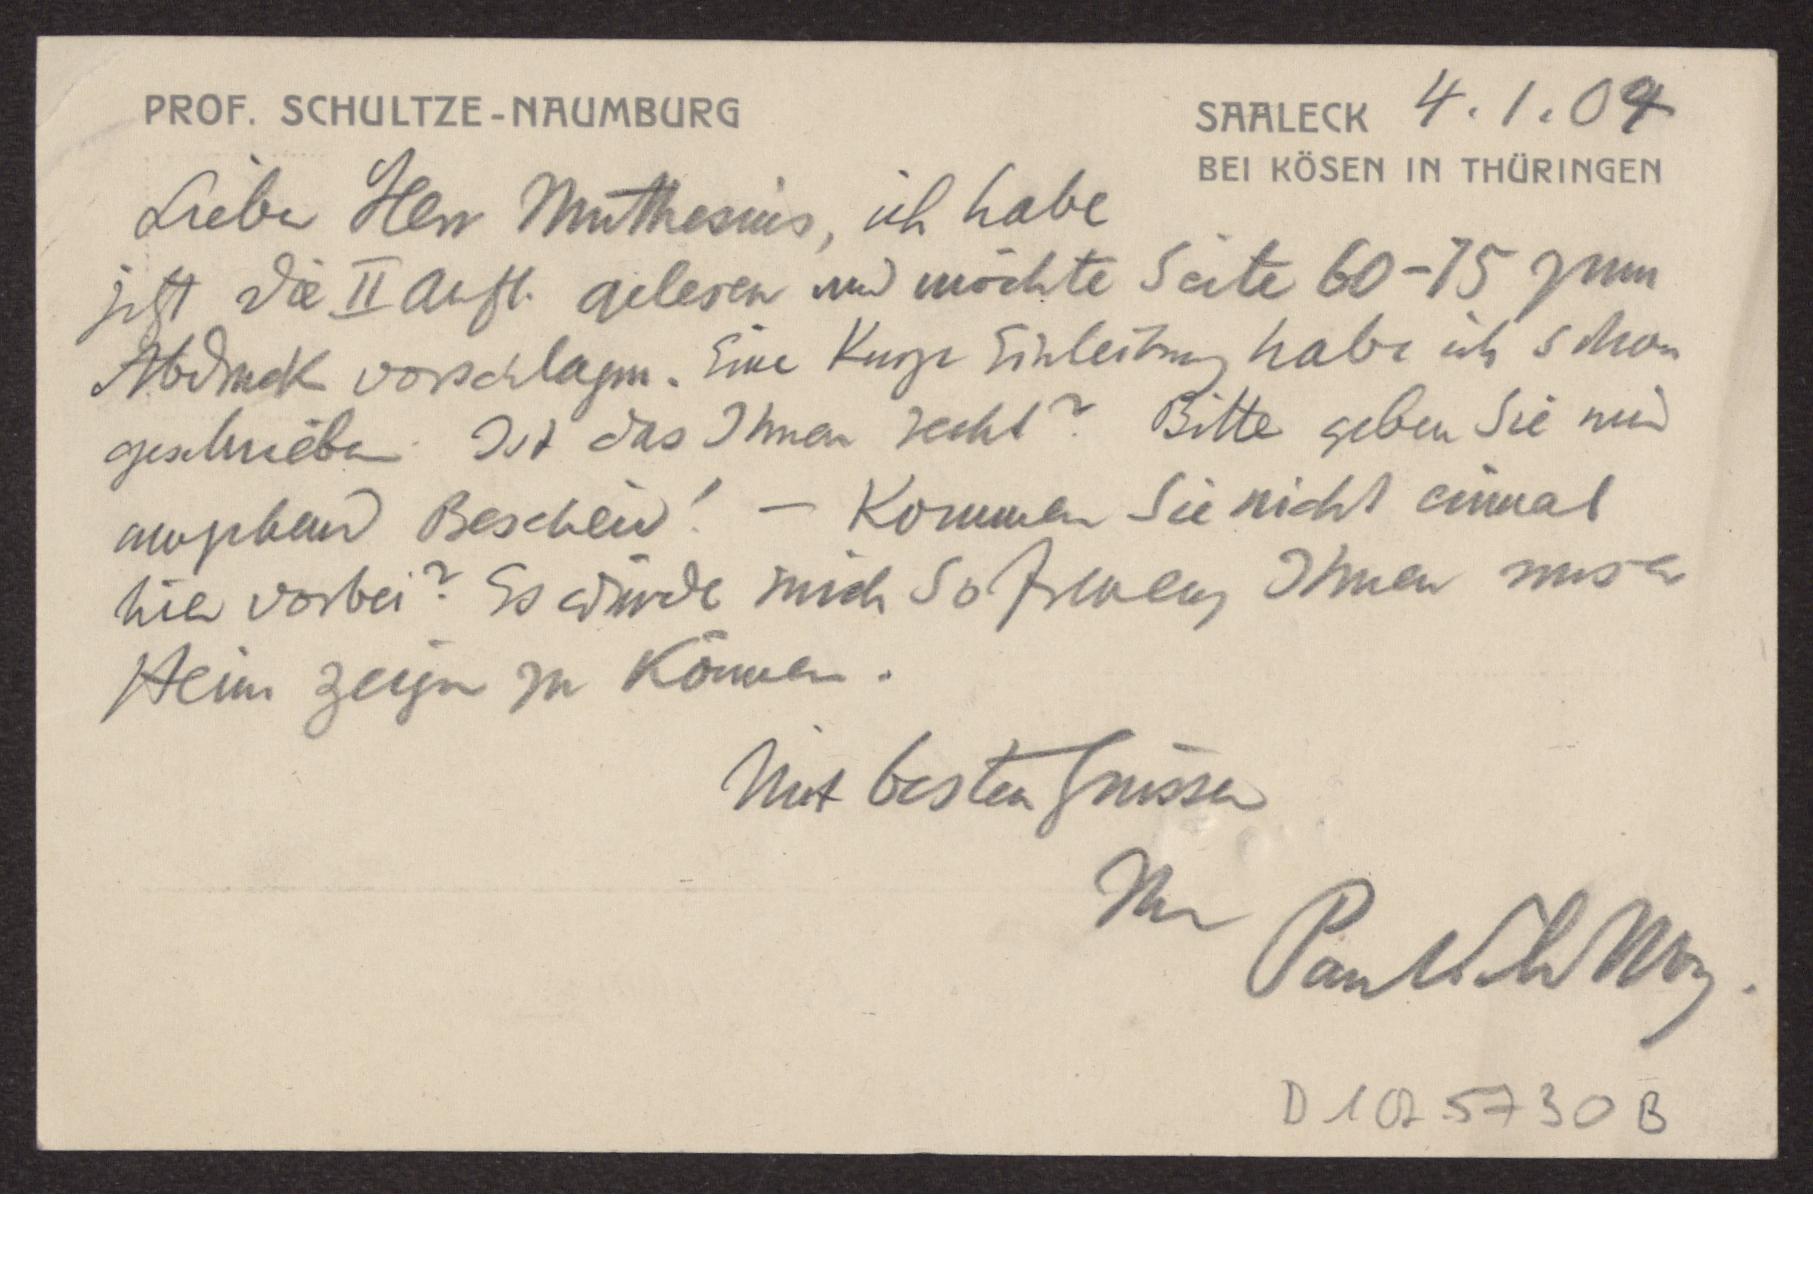 PROF. SCHULTZE-NAUMBURG
SAALECK 4.1.04
BEI KÖSEN IN THÜRINGEN
Lieber Herr Muthesius, ich habe
jetzt die II Aufl. gelesen und möchte Seite 60-75 zum
Abdruck vorschlagen. Eine kurze Einleitung habe ich schon
geschrieben. Ist das Ihnen recht? Bitte geben Sie mir
umgehend Bescheid! – Kommen Sie nicht einmal
hier vorbei? Es würde mich so freuen, Ihnen unser
Heim zeigen zu können.
Mit besten Grüssen
Ihr
Paul
D 102 5730 B